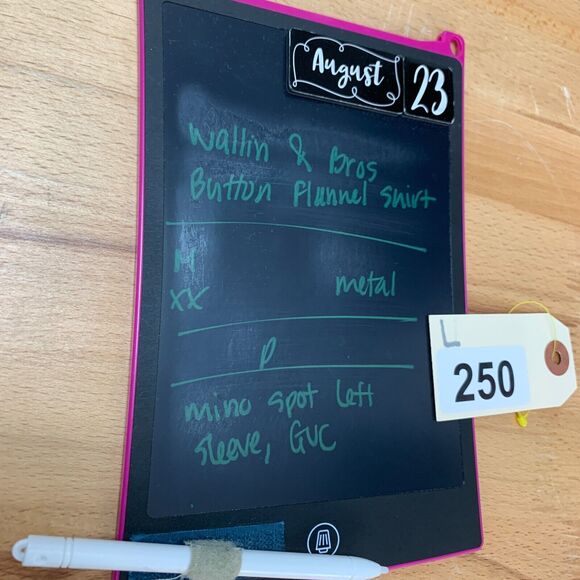 August 23
Wallin & Bros
Button Flannel Shirt
M
XX metal
P
mino spot left
sleeve, GUC
L
250